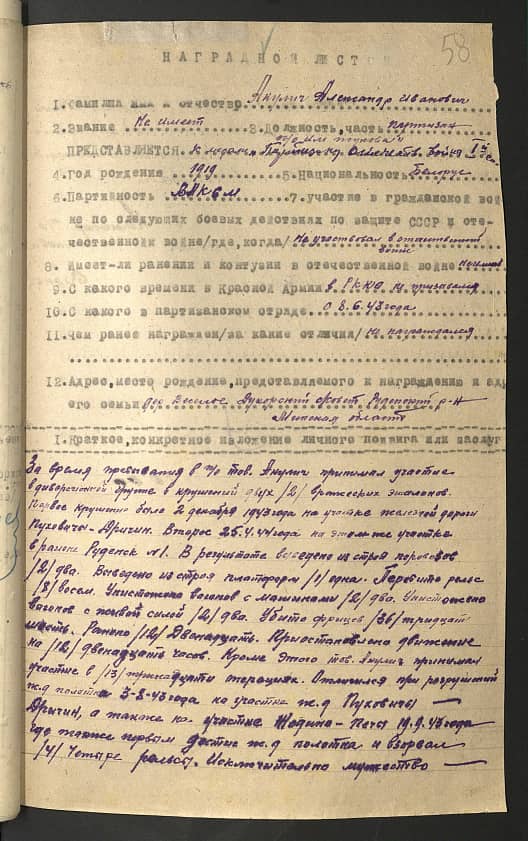 58
НАГРАДНОЙ ЛИСТ
1. Фамилия имя и отчество Акулич Александр Иванович
2. Звание Не имеет 3. Должность, часть партизан
ПРЕДСТАВЛЯЕТСЯ К медали Партизану Отечеств. войны 1й ст.
4. Год рождения 1919 5. Национальность Белорус
6. Партийность ВЛКСМ 7. участие в гражданской вой
не по следующих боевых действиях по защите СССР и оте-
чественной войне/где, когда/ Не участвовал в отечественной
войне
8. Имеет-ли ранении и контузии в отечественной войне не имеет
9. С какого времени в Красной Армии в РККА не призывался
10. С какого в партизанском отряде с 8.6.43 года
11. Чем ранее награжден/за какие отличия/ не награждался
12. Адрес, место рождение, представляемого к награждению и адр
его семьи дер Веселое Дукорский с/совет, Руденский р-н
Минская область
1. Краткое, конкретное изложение личного подвига или заслуг
За время пребывания в п/о тов. Акулич принимал участие
в диверсионной группе в крушений двух /2/ вражеских эшалонов.
Первое крушение было 2 декабря 1943 года на участке железной дороги
Пуховичы-Дричин. Второе 25.4.44 года на этом же участке
в районе Руденск №1. В результате выведено из строя паровозов
/2/ два. Выведено из строя платформ /1/ одна. Перебито рельс
/8/ восем. Уничтожено вагонов с машинами /2/ два. Уничтожено
вагонов с живой силой /2/ два. Убито фрицов /36/ тридцать
шесть. Ранено /12/ Двенадцать. Приостановлено движение
на /12/ двенадцать часов. Кроме этого тов. Акулич принимал
участие в /13/ тринадцати операциях. Отличился при разрушений
ж.д полотна 3-8-43 года на участке ж.д Пуховичы —
Дричин, а также на участке Жодино-Печы 19.9.43 года
где также первым достиг ж.д полотна и взорвал
/4/ Четыре рельсы. Исключительно мужество —